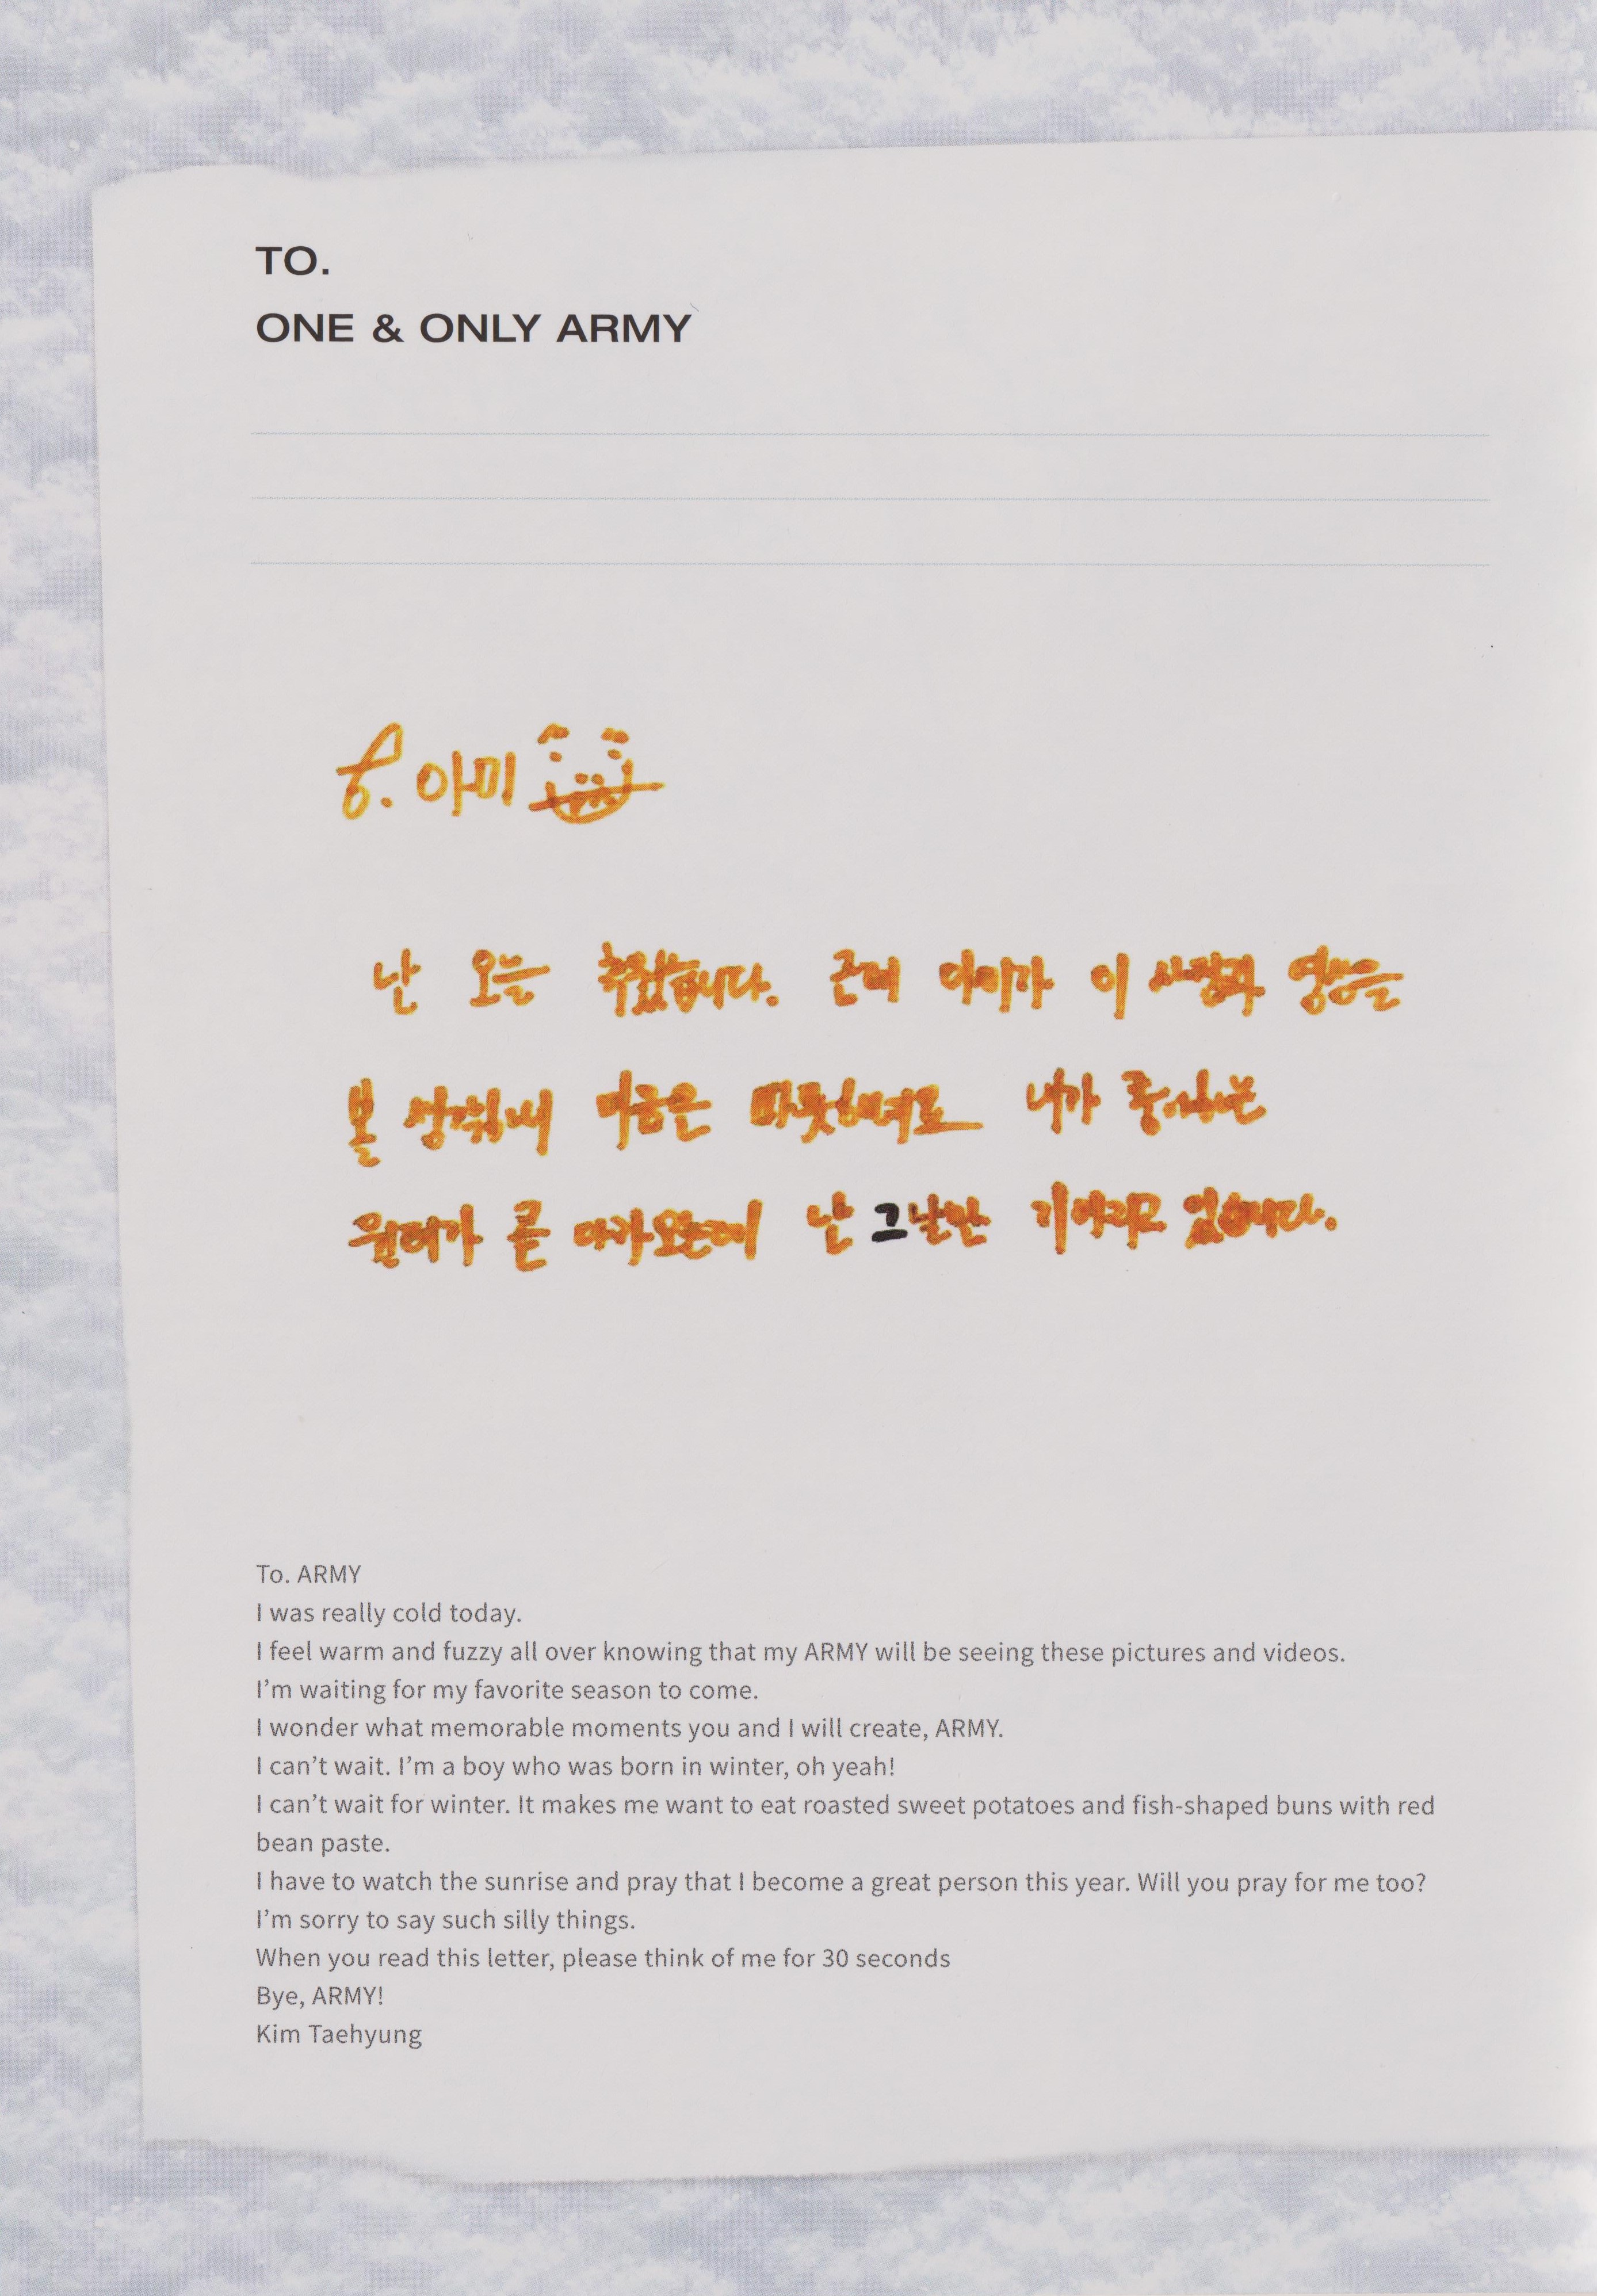 TO.
ONE & ONLY ARMY
To. 아미
난 오늘 추웠습니다. 근데 아미가 이 사진과 영상을
볼 생각에 마음은 따뜻해져요 내가 좋아하는
다가오는데 난 그날만 기다리고 있습니다.
To. ARMY
I was really cold today.
I feel warm and fuzzy all over knowing that my ARMY will be seeing these pictures and videos.
I’m waiting for my favorite season to come.
I wonder what memorable moments you and I will create, ARMY.
I can’t wait. I’m a boy who was born in winter, oh yeah!
I can’t wait for winter. It makes me want to eat roasted sweet potatoes and fish-shaped buns with red
bean paste.
I have to watch the sunrise and pray that I become a great person this year. Will you pray for me too?
I’m sorry to say such silly things.
When you read this letter, please think of me for 30 seconds
Bye, ARMY!
Kim Taehyung